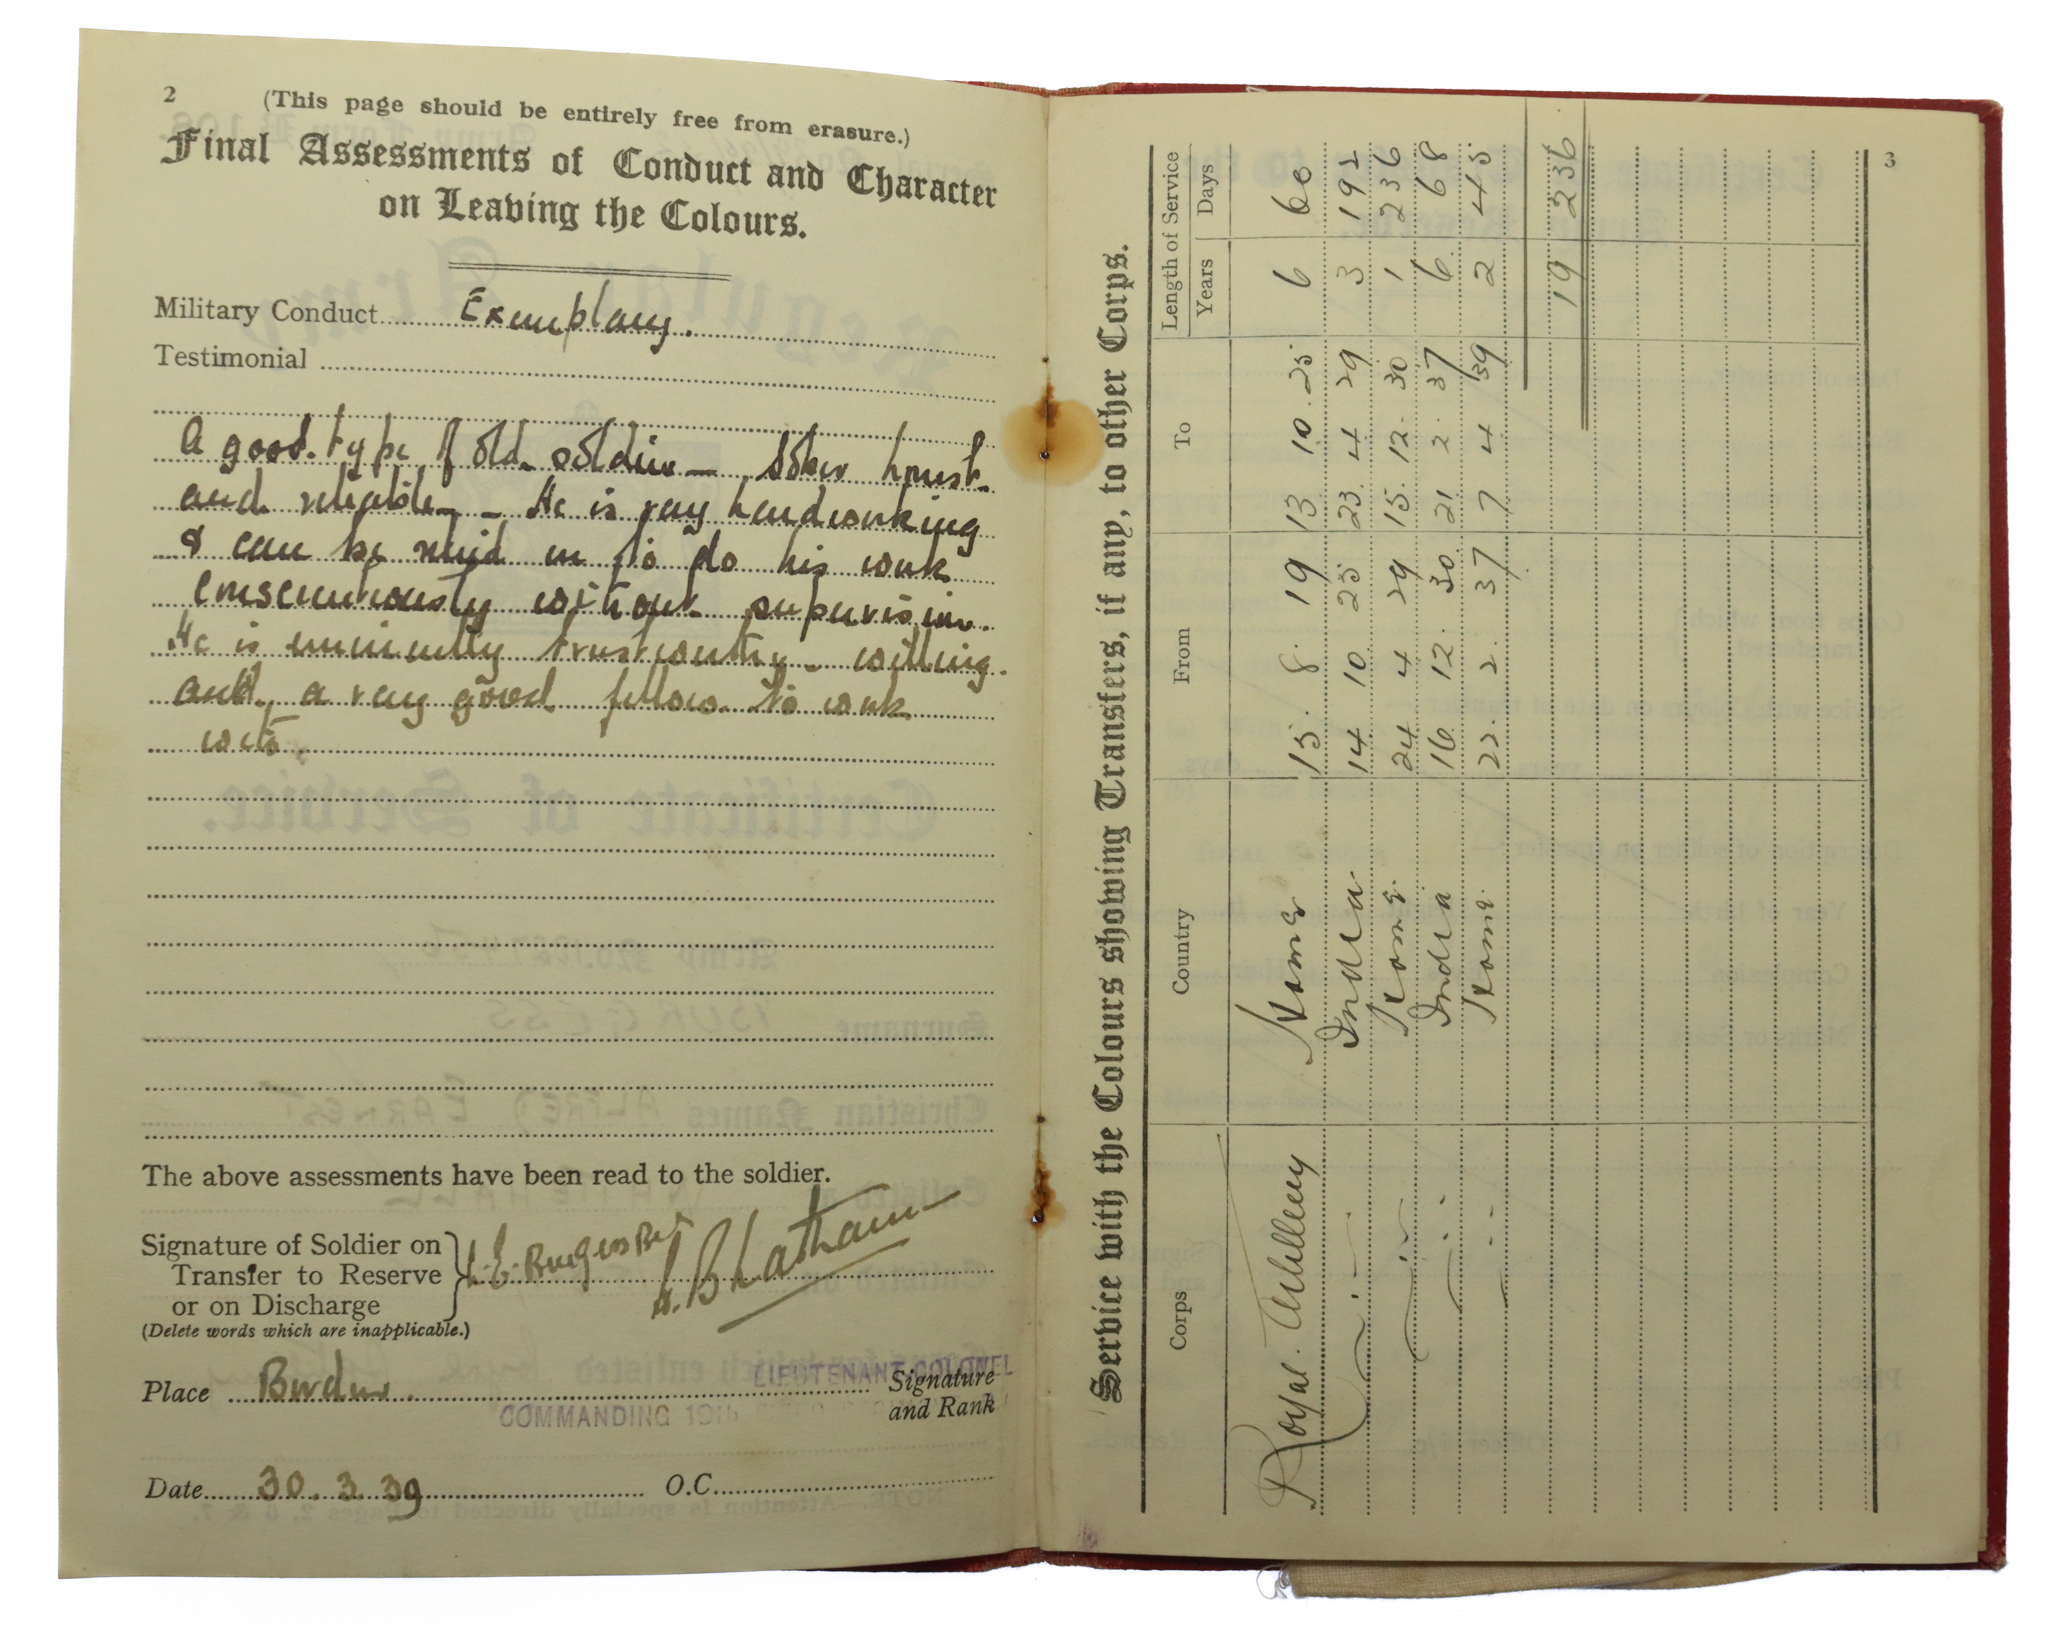 2
(This page should be entirely free from erasure.)
Final Assessments of Conduct and Character
on Leaving the Colours.
Military Conduct Exemplary.
Testimonial
A good type of old soldier — Sober honest
and reliable — He is very hardworking
& can be relied on to do his work
conscientiously without supervision.
He is eminently trustworthy - willing
and a very good fellow to work
with.
The above assessments have been read to the soldier.
Signature of Soldier on
Transfer to Reserve
or on Discharge
(Delete words which are inapplicable.)
Burgess Br
Latham
LIEUTENANT COLONEL
Place Bordon. Signature
COMMANDING 19th and Rank
Date 30.3.39 O.C.
3
Service with the Colours showing Transfers, if any, to other Corps.
Corps Country From To Length of Service
Years Days
Royal Artillery Home 15. 8. 19 13 10. 25 6 60
India 14 10 25 23. 4 29 3 192
Home 24 4 29 15. 12. 30 1 236
India 16 12. 30 21 2. 37 6 68
Home 22. 2. 37 7 4 39 2 45
19 236